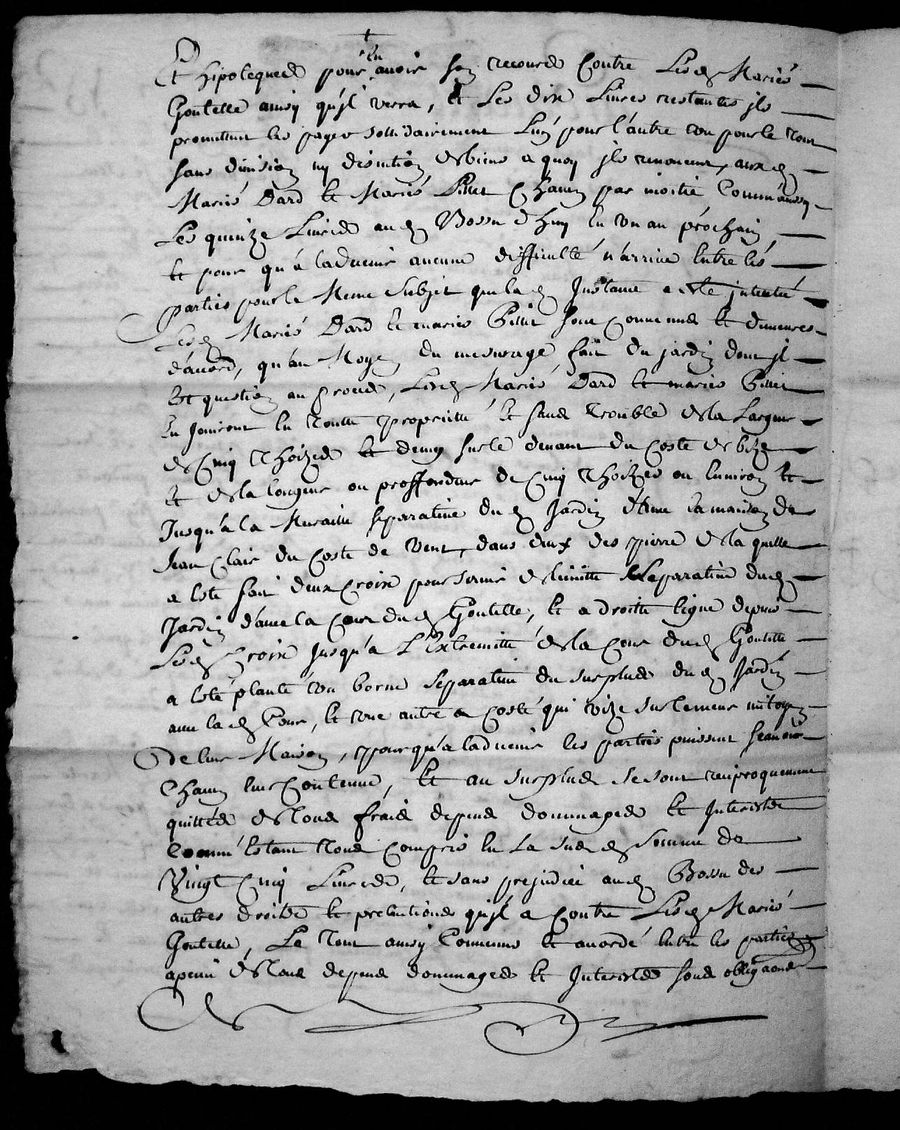 + en
Et hipotequed pour avoir son recourd Contre Lesd Mariés
Goutelle ainsy qu'jl verra, et Les dix Livres restantes jls
promettent les payer sollidairement Lun pour l'autre un pour le tout
sans division ny discution de biens a quoy jls renoncent, auxd
Mariés Dard et Mariés Pillet Chacun par moitié Comm'aussy
Les quinze Livres aud Bossu d'huy En un an prochain
Et pour qu'à ladvenir aucune difficulté n'arrive Entre les
parties pour le Meme Subjet que lad Instance a esté jntenté
Lesd Mariés Dard et mariés Pillet sont Convenus et demeurés
d'acord, qu'au Moyen du mesurage fait du jardin dont jl
Est question au proced, Lesd Mariés Dard et mariés Pillet
En Jouiront En toutte propriette et sans trouble de la Largeur
de Cinq Thoized et demy sur le devant du Costé de bize
Et de la longeur ou proffondeur de Cinq Thoizes ou Environ et
Jusqu'a la Muraille Separative dud Jardin d'avec la maison de
Jean Clair du Costé de Vent, dans deux des pierre de laquelle
a Esté fait deux Croix pour servir de limitte Separative dud
Jardin d'avec la Cour dud Goutelle, Et a droitte ligne depuis
Lesd Croix Jusqu'a L'Extremitté de la Cour dud Goutelle
a Esté planté un borne Separative du surplus dud Jardin
avec lad Cour, Et une autre a Costé qui vize sur le meur mitoyen
de leur Maison, pour qu'a ladvenir les parties puissent scavoir
Chacun leur Contenue, Et au surplus se sont reciproquement
quitted de toud fraid depend dommaged et Interestd
Comm'Estant toud Compris En La susd Somme de
Vingt Cinq Livred, Et sans prejudice aud Bossu des
autres droitd et pretentiond qu'jl a Contre Lesd Mariés
Goutelle, Le tout ainsy Convenu et acordé Entre les parties
a peine de toud depend dommaged et Interestd soud obligaond